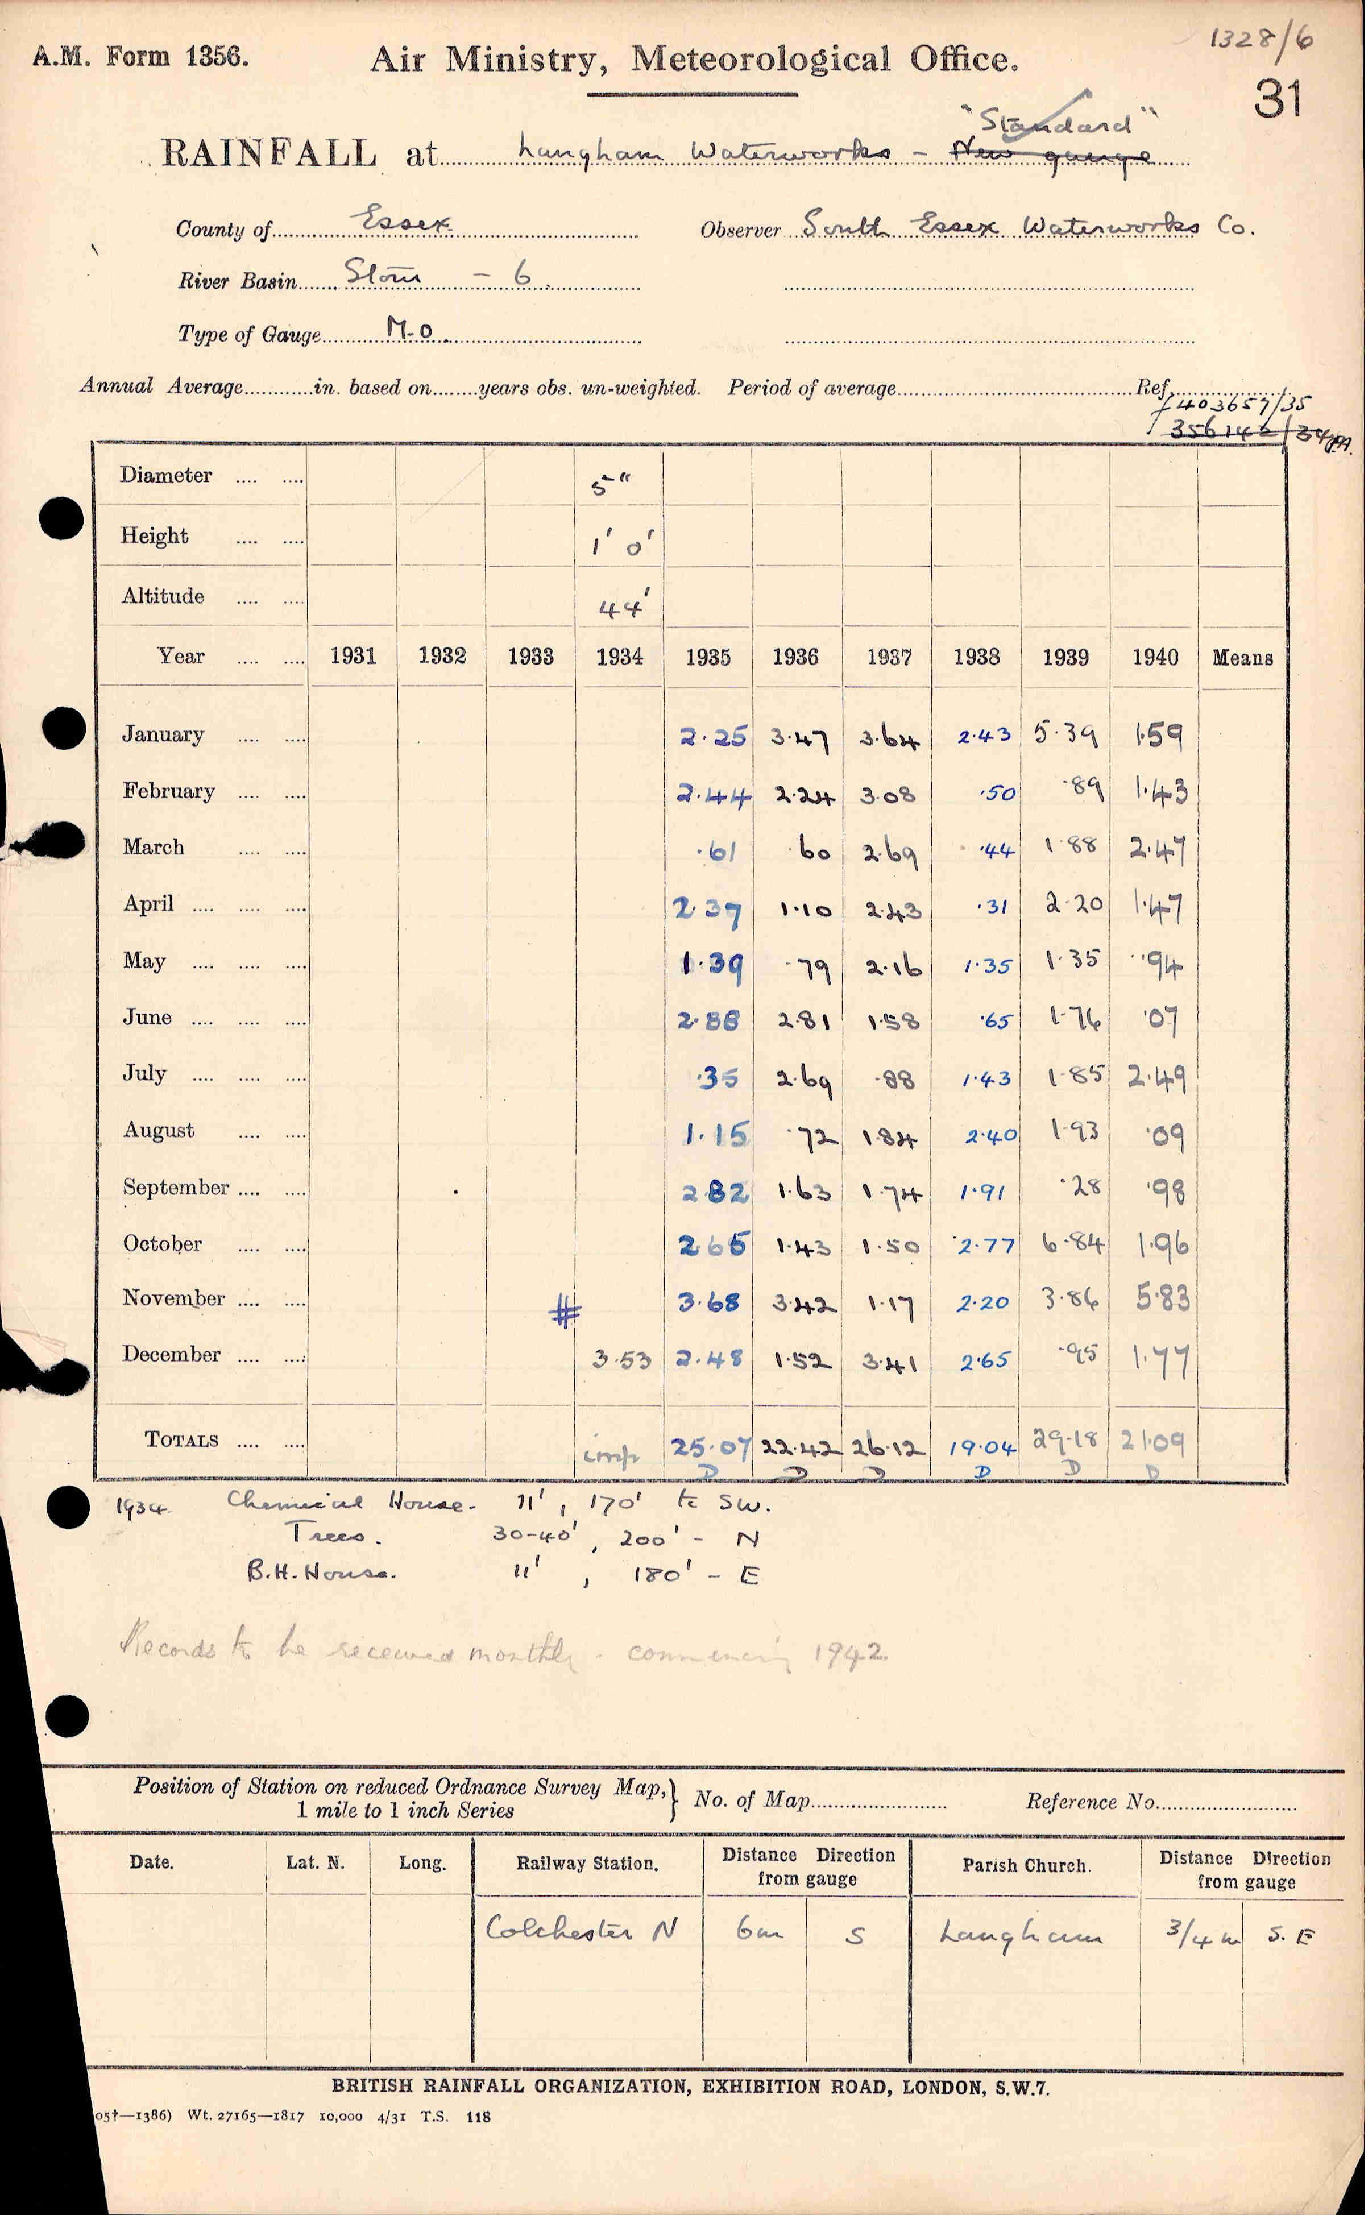 1328/6
A.M. Form 1356. Air Ministry, Meteorological Office.
31
"Standard"
RAINFALL at Langham Waterworks - New gauge
County of Essex Observer South Essex Waterworks Co.
River Basin Stour - 6
Type of Gauge M.O.
Annual Average in. based on years obs. un-weighted. Period of average Ref.
403657/35
356142/34
Diameter .... .... 5"
Height .... .... 1' 0"
Altitude .... .... 44'
Year .... .... 1931 1932 1933 1934 1935 1936 1937 1938 1939 1940 Means
January .... .... 2.25 3.47 3.64 2.43 5.39 1.59
February .... .... 2.44 2.24 3.08 .50 .89 1.43
March .... .... .61 .60 2.69 .44 1.88 2.47
April .... .... .... 2.37 1.10 2.43 .31 2.20 1.47
May .... .... .... 1.39 .79 2.16 1.35 1.35 .94
June .... .... .... 2.88 2.81 1.58 .65 1.76 .07
July .... .... .... .35 2.69 .88 1.43 1.85 2.49
August .... .... 1.15 .72 1.84 2.40 1.93 .09
September .... .... 2.82 1.63 1.74 1.91 .28 .98
October .... .... 2.65 1.43 1.50 2.77 6.84 1.96
November .... .... # 3.68 3.42 1.17 2.20 3.86 5.83
December .... .... 3.53 2.48 1.52 3.41 2.65 .95 1.77
TOTALS .... .... imp 25.07 22.42 26.12 19.04 29.18 21.09
D D D D D D
1934 Chemical House. 11', 170' to SW.
Trees. 30-40', 200' - N
B.H. House. 11', 180' - E
Records to be received monthly - commencing 1942
Position of Station on reduced Ordnance Survey Map, } No. of Map Reference No.
1 mile to 1 inch Series
Date. Lat. N. Long. Railway Station. Distance Direction from gauge Parish Church. Distance Direction from gauge
Colchester N 6m S Langham 3/4 m S.E
BRITISH RAINFALL ORGANIZATION, EXHIBITION ROAD, LONDON, S.W.7.
05†—1386) Wt. 27165—1817 10,000 4/31 T.S. 118